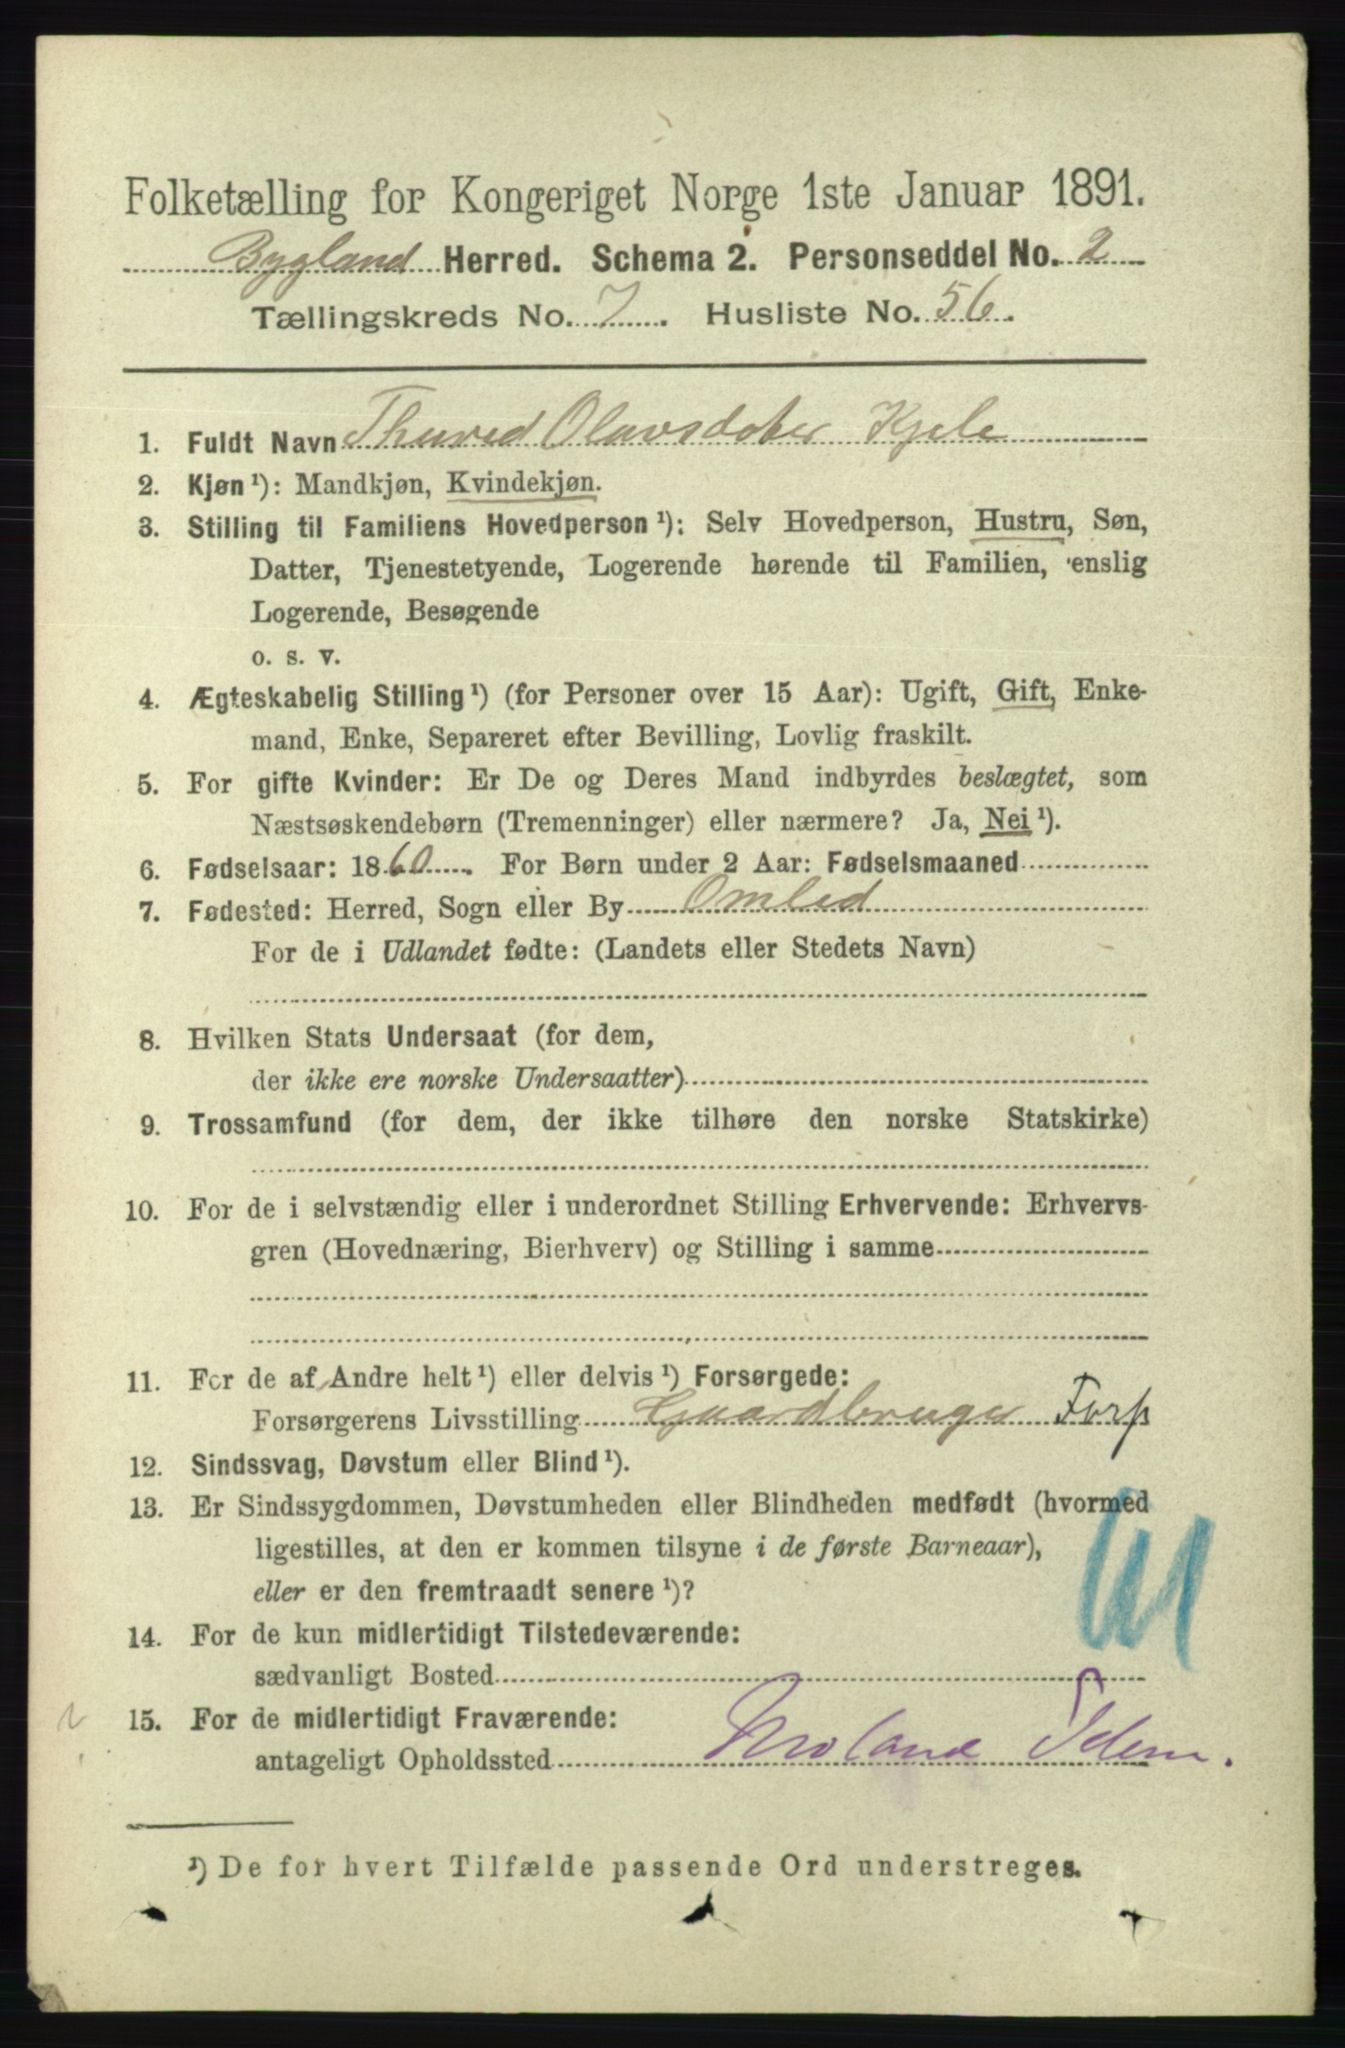 Folketælling for Kongeriget Norge 1ste Januar 1891.
Bygland Herred. Schema 2. Personseddel No. 2
Tællingskreds No. 7. Husliste No. 56.
1. Fuldt Navn Thured Olavsdoter Kjele
2. Kjøn ¹): Mandkjøn, Kvindekjøn.
3. Stilling til Familiens Hovedperson ¹): Selv Hovedperson, Hustru, Søn,
Datter, Tjenestetyende, Logerende hørende til Familien, enslig
Logerende, Besøgende
o. s. v.
4. Ægteskabelig Stilling ¹) (for Personer over 15 Aar): Ugift, Gift, Enke-
mand, Enke, Separeret efter Bevilling, Lovlig fraskilt.
5. For gifte Kvinder: Er De og Deres Mand indbyrdes beslægtet, som
Næstsøskendebørn (Tremenninger) eller nærmere? Ja, Nei ¹).
6. Fødselsaar: 1860. For Børn under 2 Aar: Fødselsmaaned
7. Fødested: Herred, Sogn eller By Omled
For de i Udlandet fødte: (Landets eller Stedets Navn)
8. Hvilken Stats Undersaat (for dem,
der ikke ere norske Undersaatter)
9. Trossamfund (for dem, der ikke tilhøre den norske Statskirke)
10. For de i selvstændig eller i underordnet Stilling Erhvervende: Erhvervs-
gren (Hovednæring, Bierhverv) og Stilling i samme
11. For de af Andre helt ¹) eller delvis ¹) Forsørgede:
Forsørgerens Livsstilling Gaardbruger Forp
12. Sindssvag, Døvstum eller Blind ¹).
13. Er Sindssygdommen, Døvstumheden eller Blindheden medfødt (hvormed
ligestilles, at den er kommen tilsyne i de første Barneaar),
eller er den fremtraadt senere ¹)?
14. For de kun midlertidigt Tilstedeværende:
sædvanligt Bosted
15. For de midlertidigt Fraværende:
antageligt Opholdssted Moland
¹) De for hvert Tilfælde passende Ord understreges.